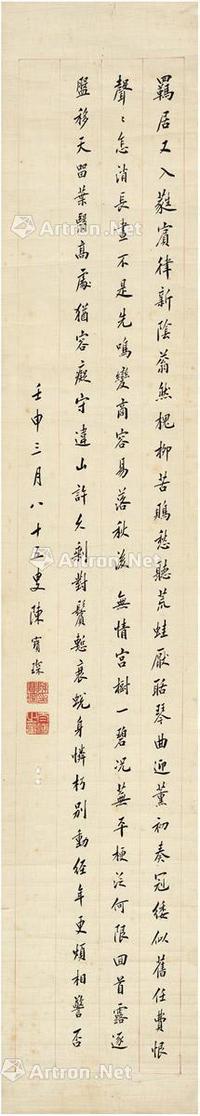 羈居又入蕤賓律新陰蓊然槐柳苦鵙愁聽荒蛙厭聒琴曲迎薰初奏冠緌似舊任費恨
聲聲怎消長晝不是先鳴變商容易落秋後無情宮樹一碧況蕪平梗泛何限回首露逐
盤移天留葉翳高處猶容癡守違山許久剩對鬢慙衰蛻身憐朽別動經年更煩相警否
壬申三月八十五叟陳寶琛
Artron.Net
Artron.Net
Artron.Net
Artron.Net